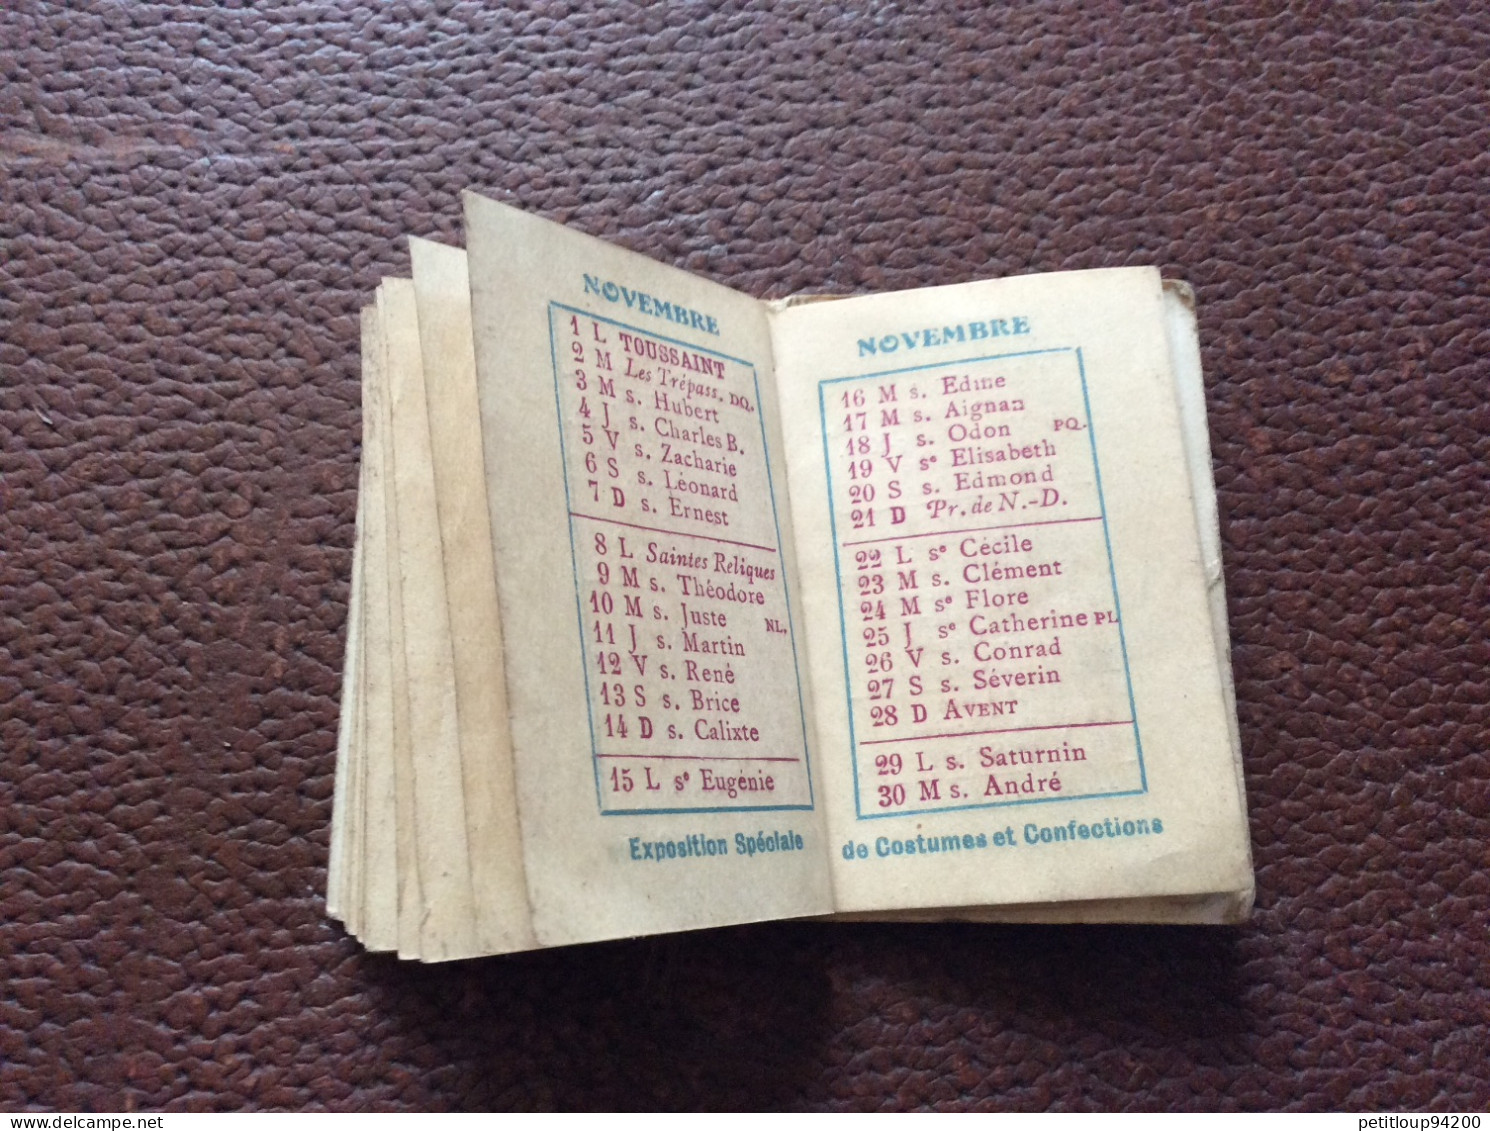 NOVEMBRE
1 L TOUSSAINT
2 M Les Trépass. DQ.
3 M s. Hubert
4 J s. Charles B.
5 V s. Zacharie
6 S s. Léonard
7 D s. Ernest
8 L Saintes Reliques
9 M s. Théodore
10 M s. Juste NL.
11 J s. Martin
12 V s. René
13 S s. Brice
14 D s. Calixte
15 L se Eugénie
Exposition Spéciale
NOVEMBRE
16 M s. Edme
17 M s. Aignan
18 J s. Odon PQ.
19 V se Elisabeth
20 S s. Edmond
21 D Pr. de N.-D.
22 L se Cécile
23 M s. Clément
24 M se Flore
25 J se Catherine PL
26 V s. Conrad
27 S s. Séverin
28 D AVENT
29 L s. Saturnin
30 M s. André
de Costumes et Confections
delcampe.net
petitloup94200